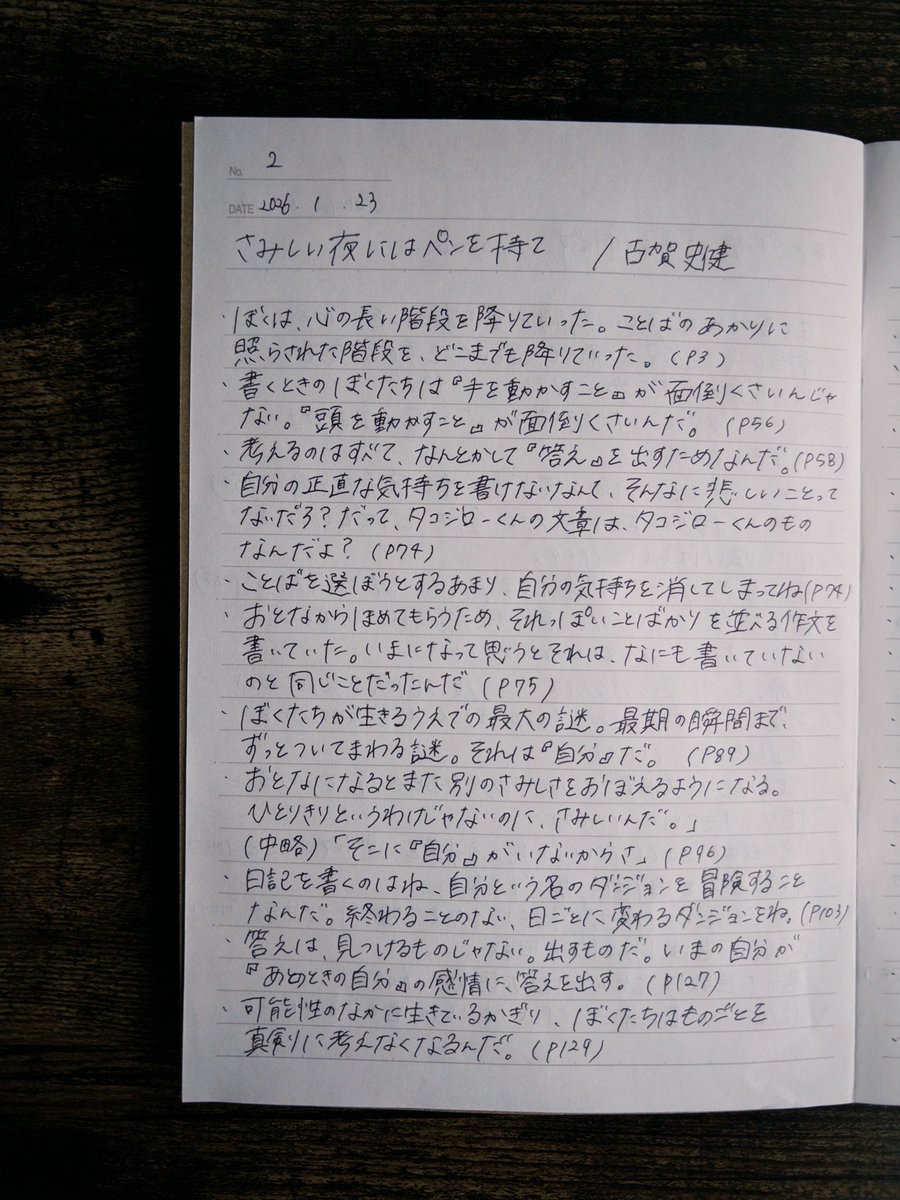 No. 2
DATE 2026 . 1 . 23
さみしい夜にはペンを持て / 古賀史健
・ぼくは、心の長い階段を降りていった。ことばのあかりに
照らされた階段を、どこまでも降りていった。(P3)
・書くときのぼくたちは『手を動かすこと』が面倒くさいんじゃ
ない。『頭を動かすこと』が面倒くさいんだ。(P56)
・考えるのはすべて、なんとかして『答え』を出すためなんだ。(P58)
・自分の正直な気持ちを書けないなんて、そんなに悲しいことって
ないだろ?だって、タコジローくんの文章は、タコジローくんのもの
なんだよ?(P74)
・ことばを選ぼうとするあまり、自分の気持ちを消してしまってね(P74)
・おとなからほめてもらうため、それっぽいことばかりを並べる作文を
書いていた。いまになって思うとそれは、なにも書いていない
のと同じことだったんだ(P75)
・ぼくたちが生きるうえでの最大の謎。最期の瞬間まで、
ずっとついてまわる謎。それは『自分』だ。(P89)
・おとなになるとまた別のさみしさをおぼえるようになる。
ひとりきりというわけじゃないのに、さみしいんだ。」
(中略)「そこに『自分』がいないからさ」(P96)
・日記を書くのはね、自分という名のダンジョンを冒険すること
なんだ。終わることのない、日ごとに変わるダンジョンをね。(P103)
・答えは、見つけるものじゃない。出すものだ。いまの自分が
『あのときの自分』の感情に、答えを出す。(P127)
・可能性のなかに生きているかぎり、ぼくたちはものごとを
真剣に考えなくなるんだ。(P129)